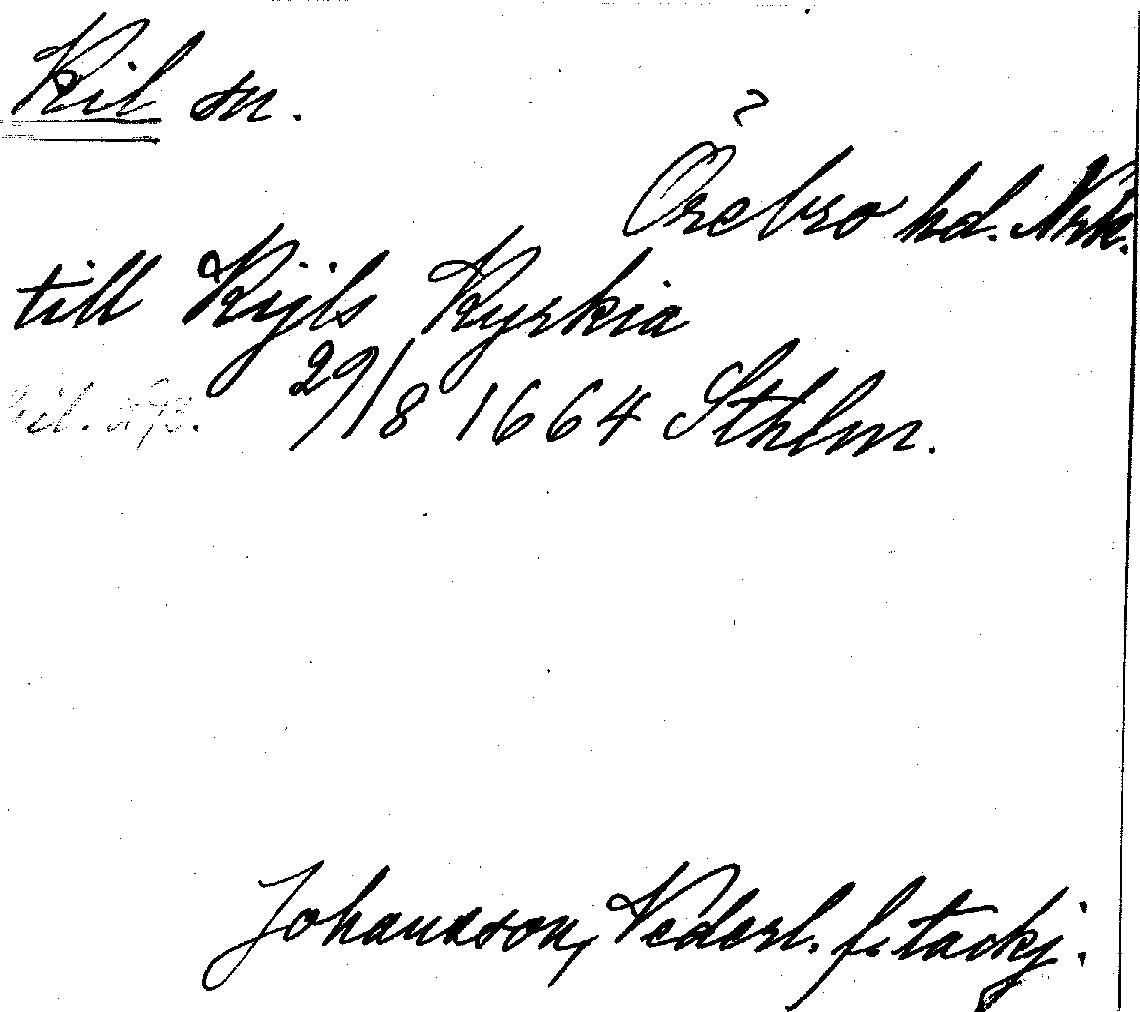 Kil sn.
Örebro hd. Nrk.
till Kijls Kyrkia
29/8 1664 Sthlm.
Johansson, Nederl. f. tackj.